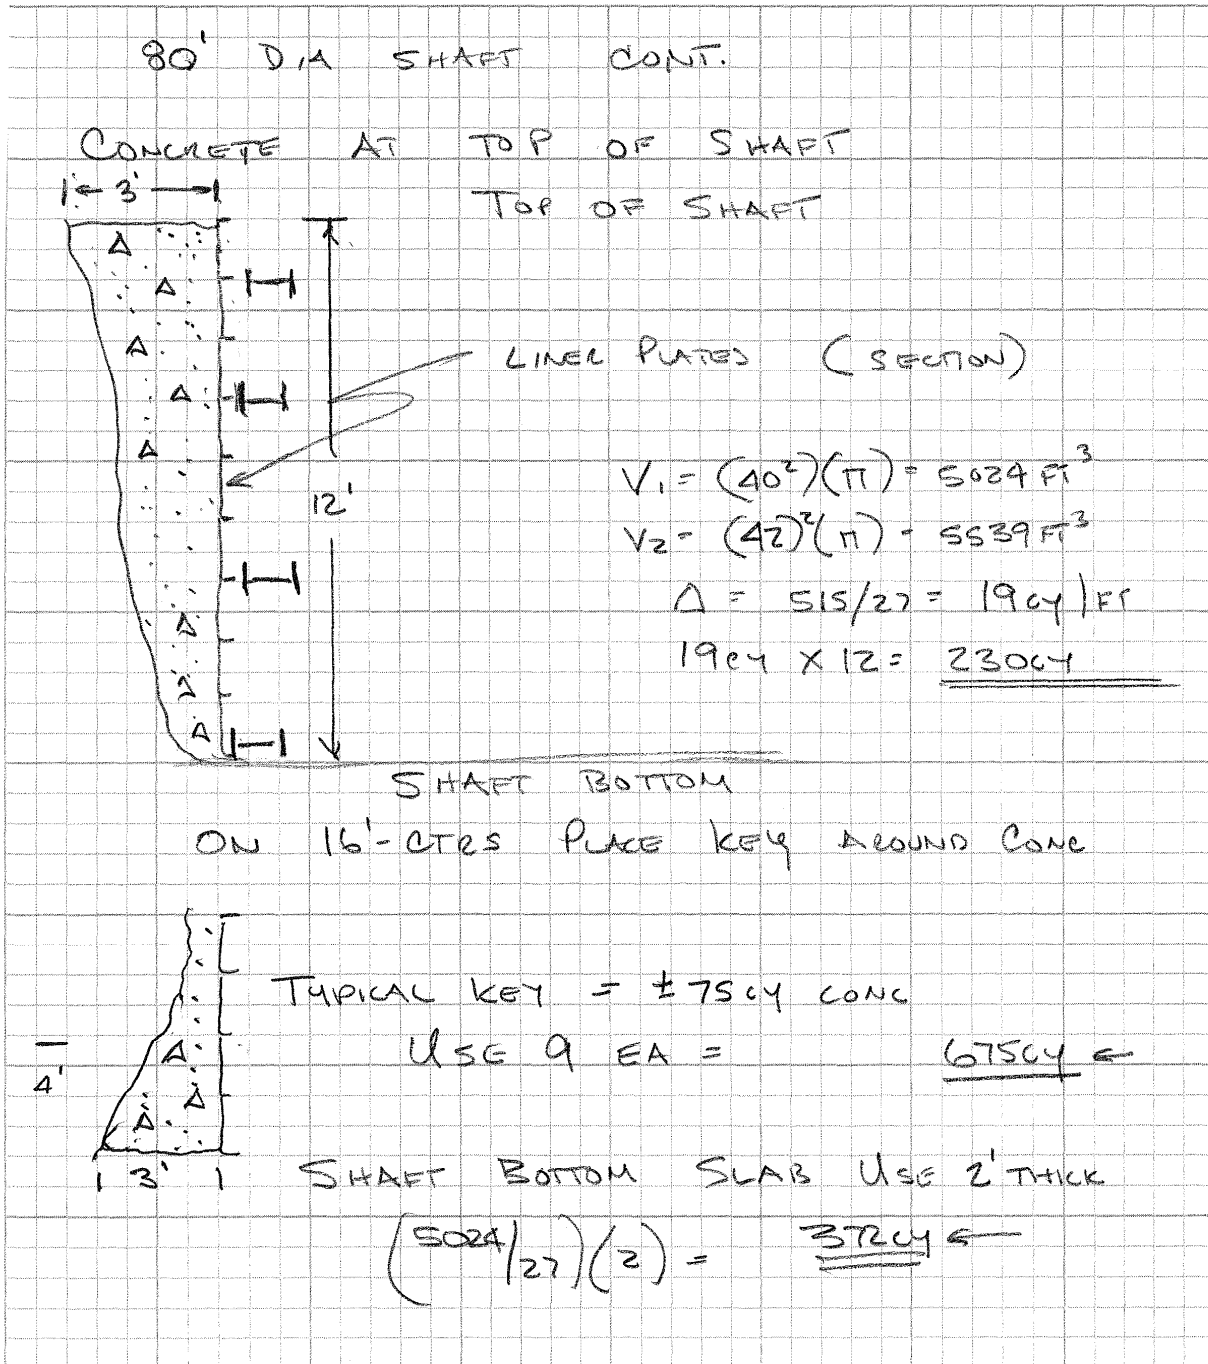 80' DIA SHAFT CONT.
CONCRETE AT TOP OF SHAFT
3'
TOP OF SHAFT
LINER PLATES (SECTION)
V1 = (40²)(π) = 5024 FT³
12'
V2 = (42)²(π) = 5539 FT³
Δ = 515/27 = 19cy/FT
19cy X 12 = 230cy
SHAFT BOTTOM
ON 16'-CTRS PLACE KEY AROUND CONC
TYPICAL KEY = ±75cy CONC
USE 9 EA = 675cy ←
4'
3'
SHAFT BOTTOM SLAB USE 2' THICK
(5024/27)(2) = 372cy ←